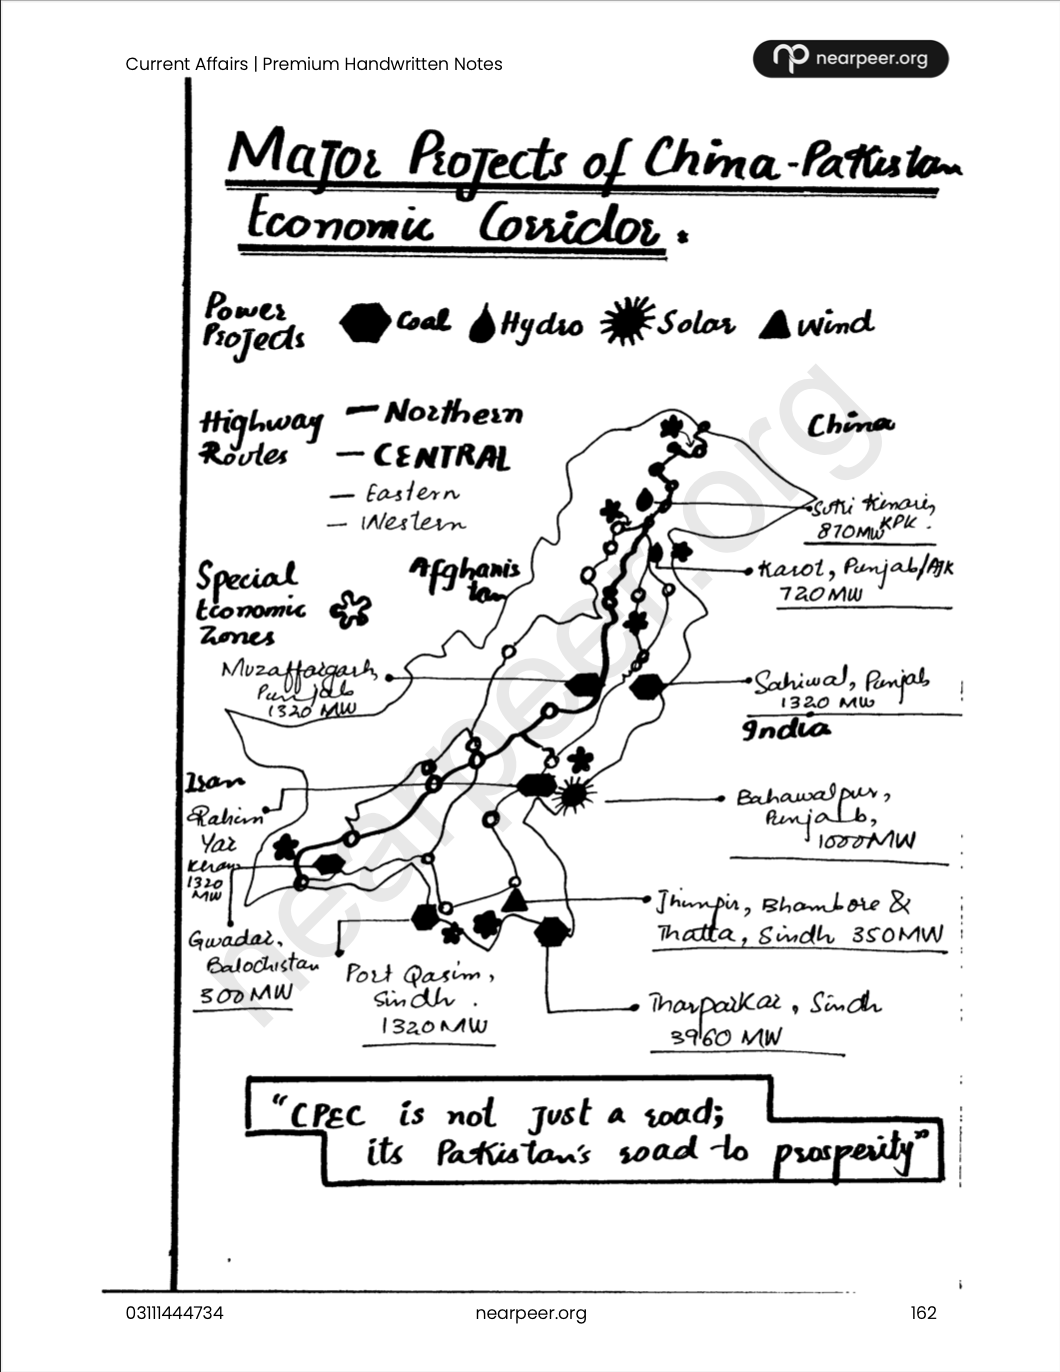 Current Affairs | Premium Handwritten Notes
nearpeer.org
Major Projects of China-Pakistan
Economic Corridor.
Power
Projects
Coal
Hydro
Solar
Wind
Highway
Routes
— Northern
— CENTRAL
— Eastern
— Western
China
Suki Kinari,
KPK.
870MW
Afghanis
tan
Karot, Punjab/AJK
720MW
Special
Economic
Zones
Muzaffargarh,
Punjab
1320 MW
Sahiwal, Punjab
1320 MW
India
Iran
Rahim
Yar
Khan
1320
MW
Bahawalpur,
Punjab,
1000MW
Jhimpir, Bhambore &
Thatta, Sindh 350MW
Gwadar,
Balochistan
300 MW
Port Qasim,
Sindh.
1320MW
Tharparkar, Sindh
3960 MW
"CPEC is not just a road;
its Pakistan's road to prosperity"
nearpeer.org
03111444734
nearpeer.org
162